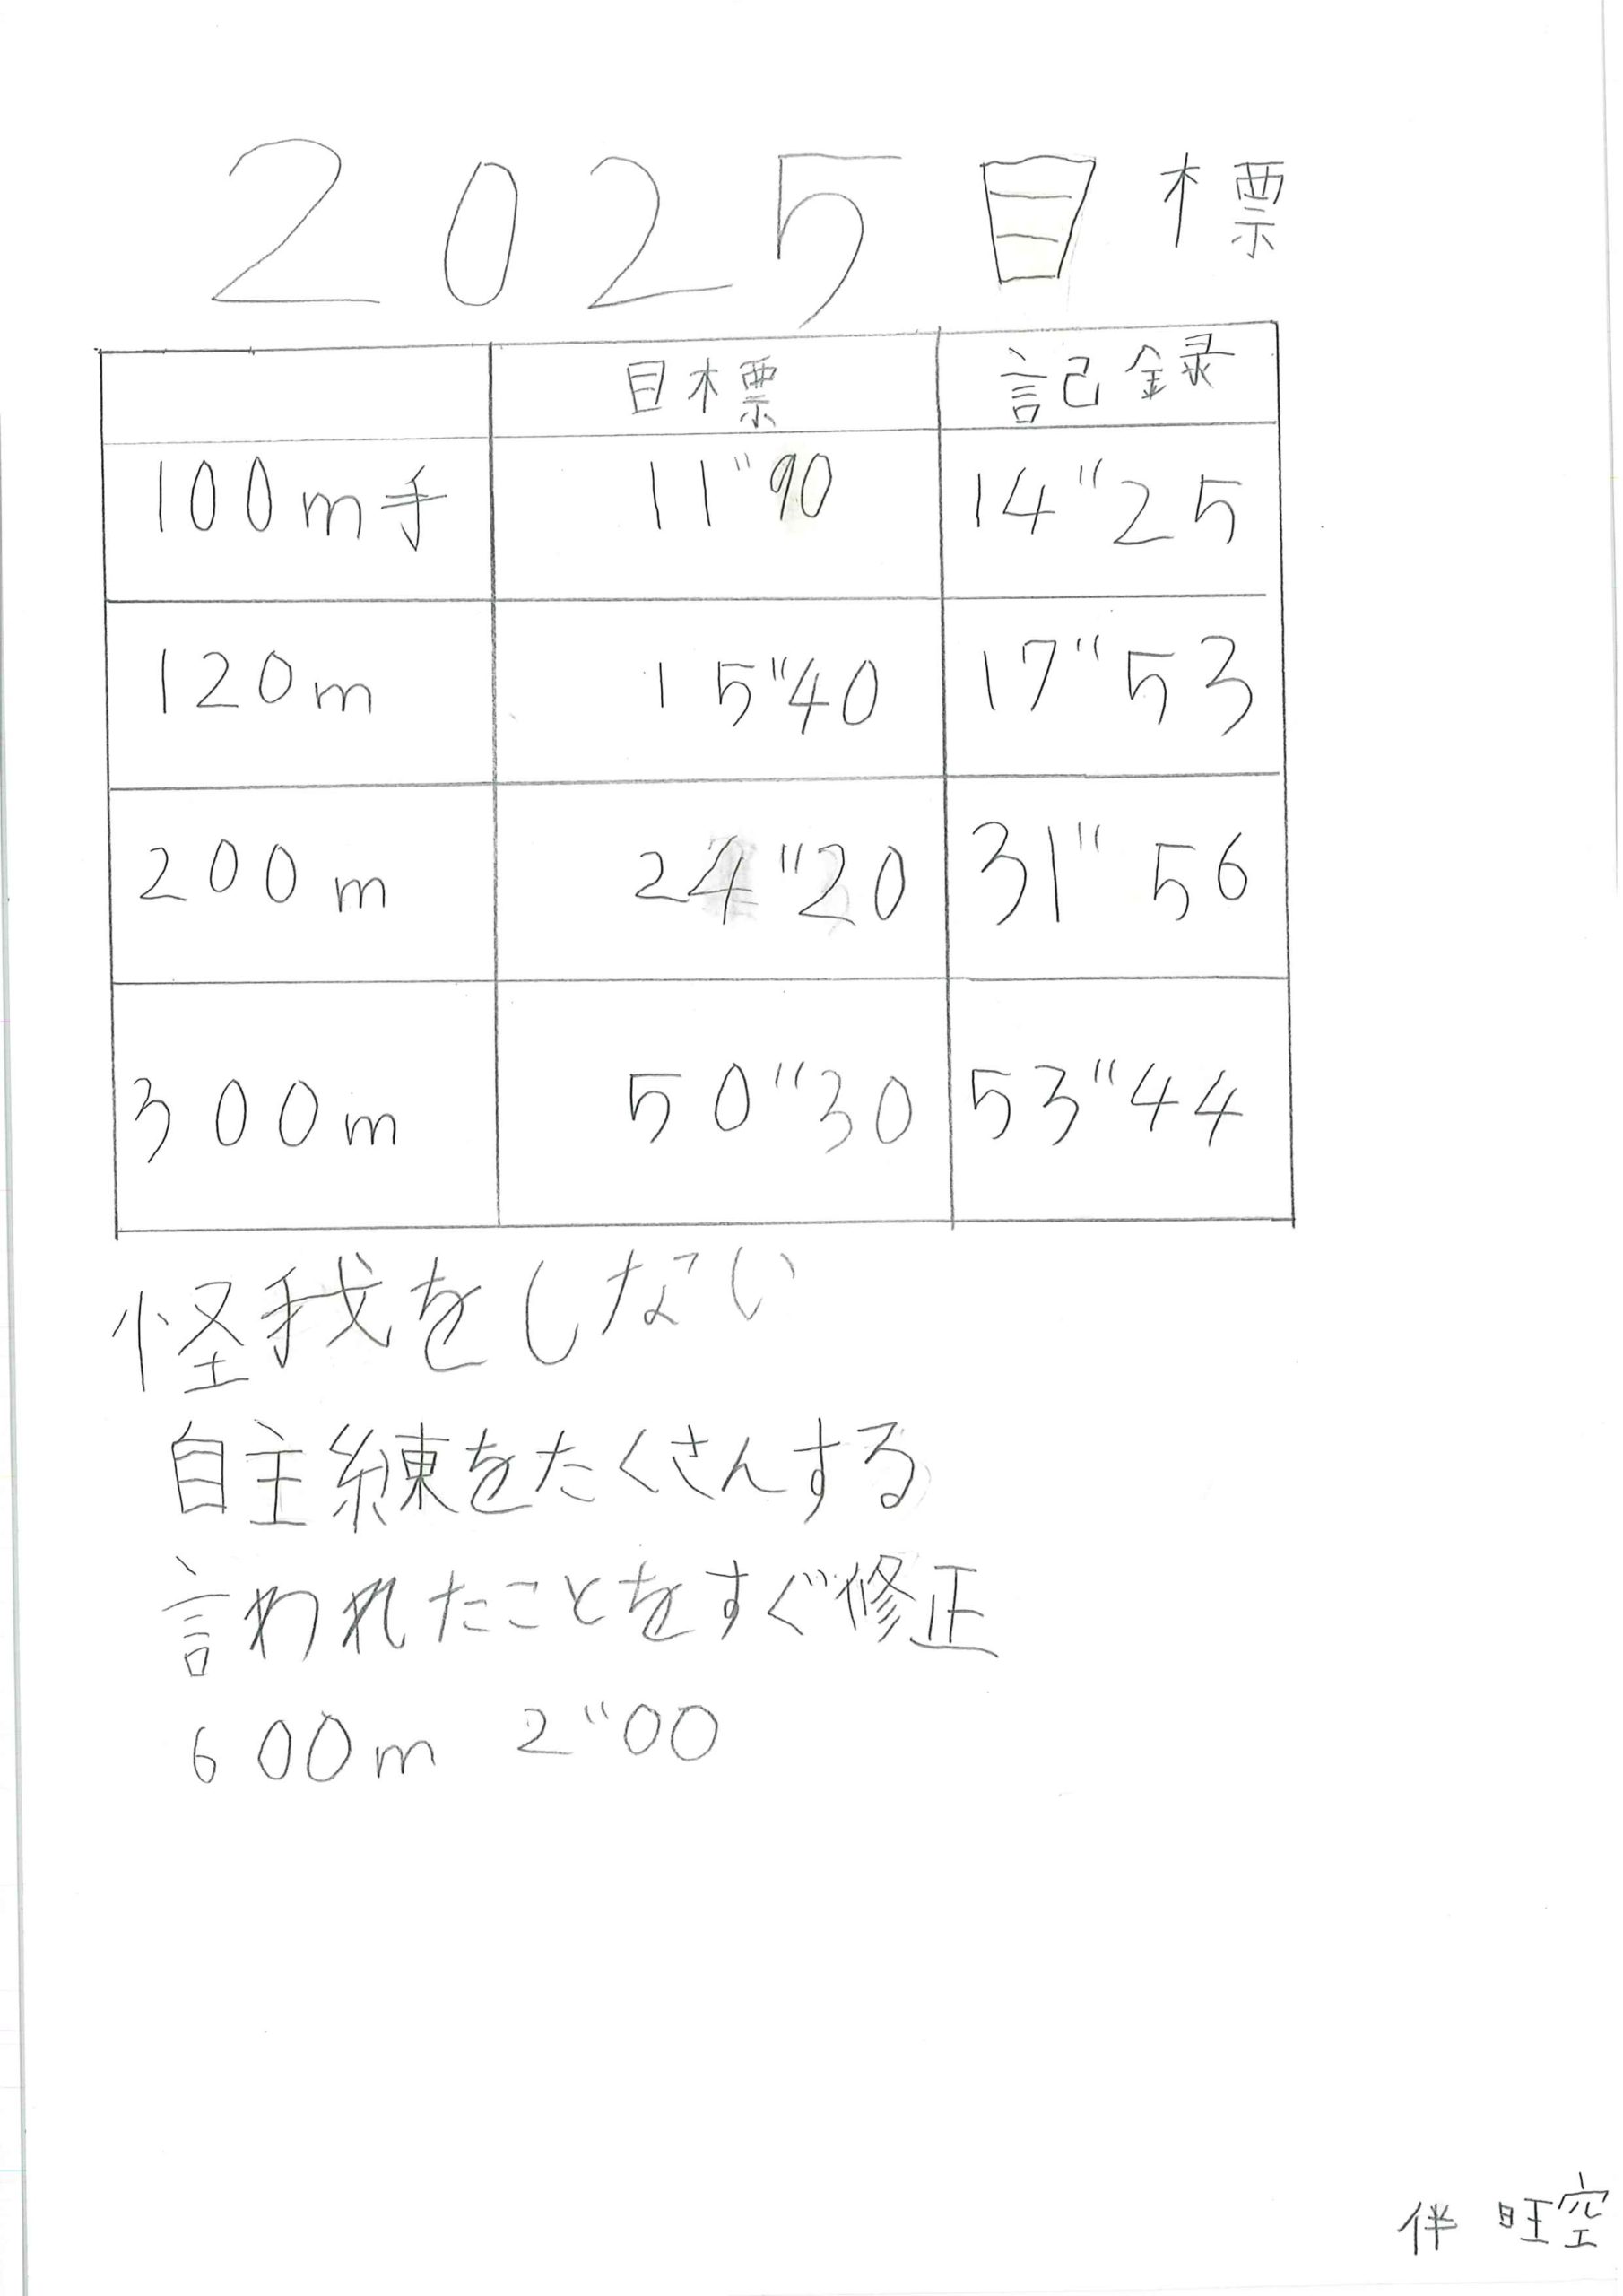 2025目標
目標 記録
100m手 11"90 14"25
120m 15"40 17"53
200m 24"20 31"56
300m 50"30 53"44
怪我をしない
自主練をたくさんする
言われたことをすぐ修正
600m 2"00
伴 旺空